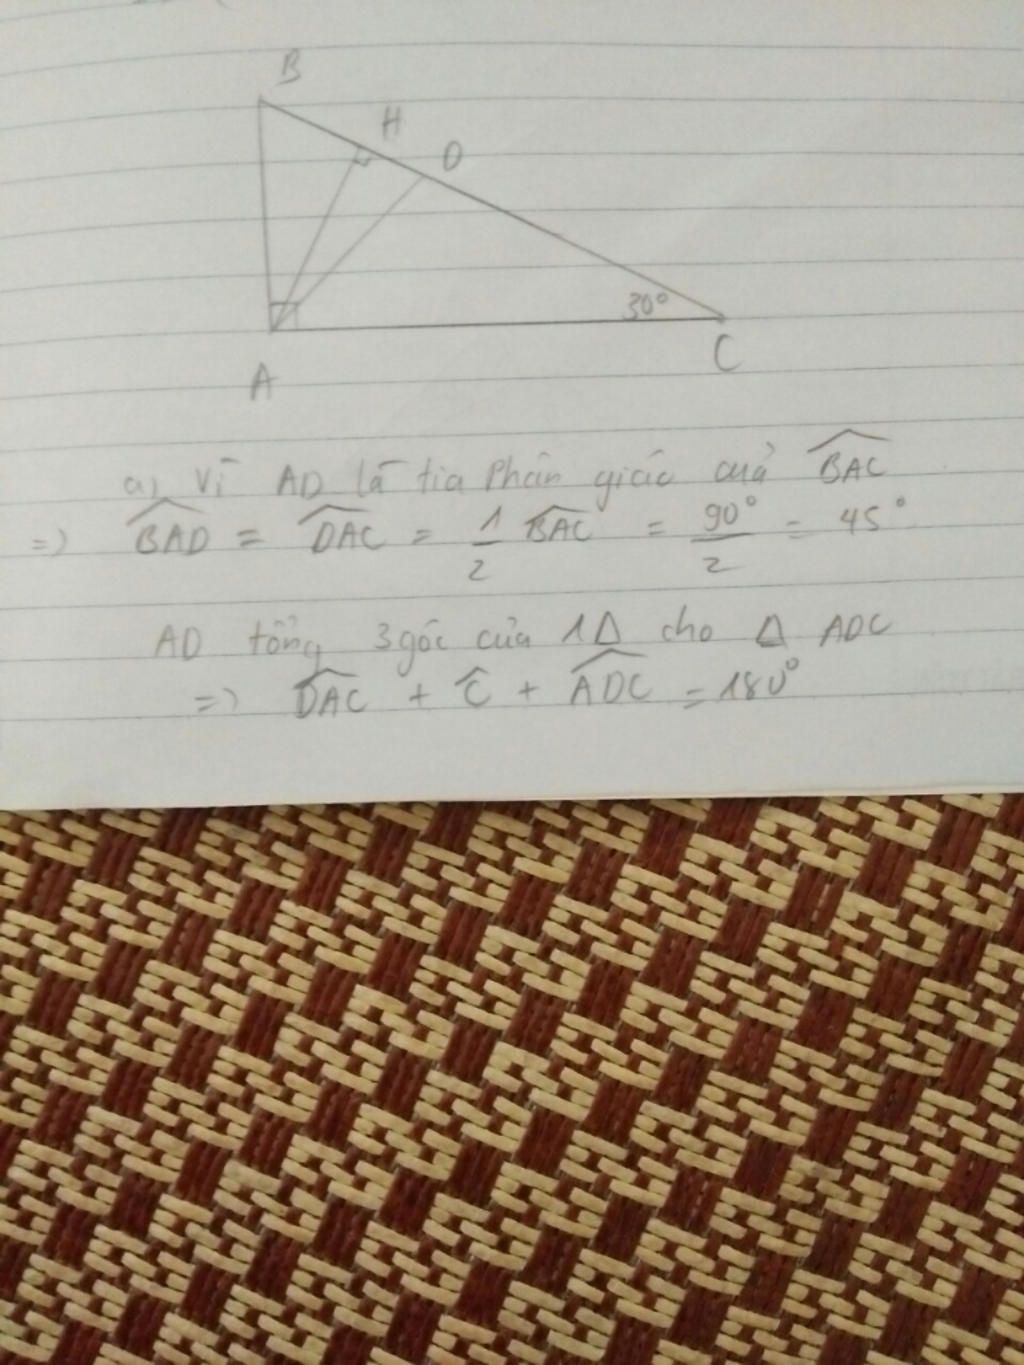 B
H
D
30°
A
C
a) Vì AD là tia Phân giác của \widehat{BAC}
=> \widehat{BAD} = \widehat{DAC} = \frac{1}{2} \widehat{BAC} = \frac{90°}{2} = 45°
AD tổng 3 góc của 1Δ cho Δ ADC
=> \widehat{DAC} + \widehat{C} + \widehat{ADC} = 180°